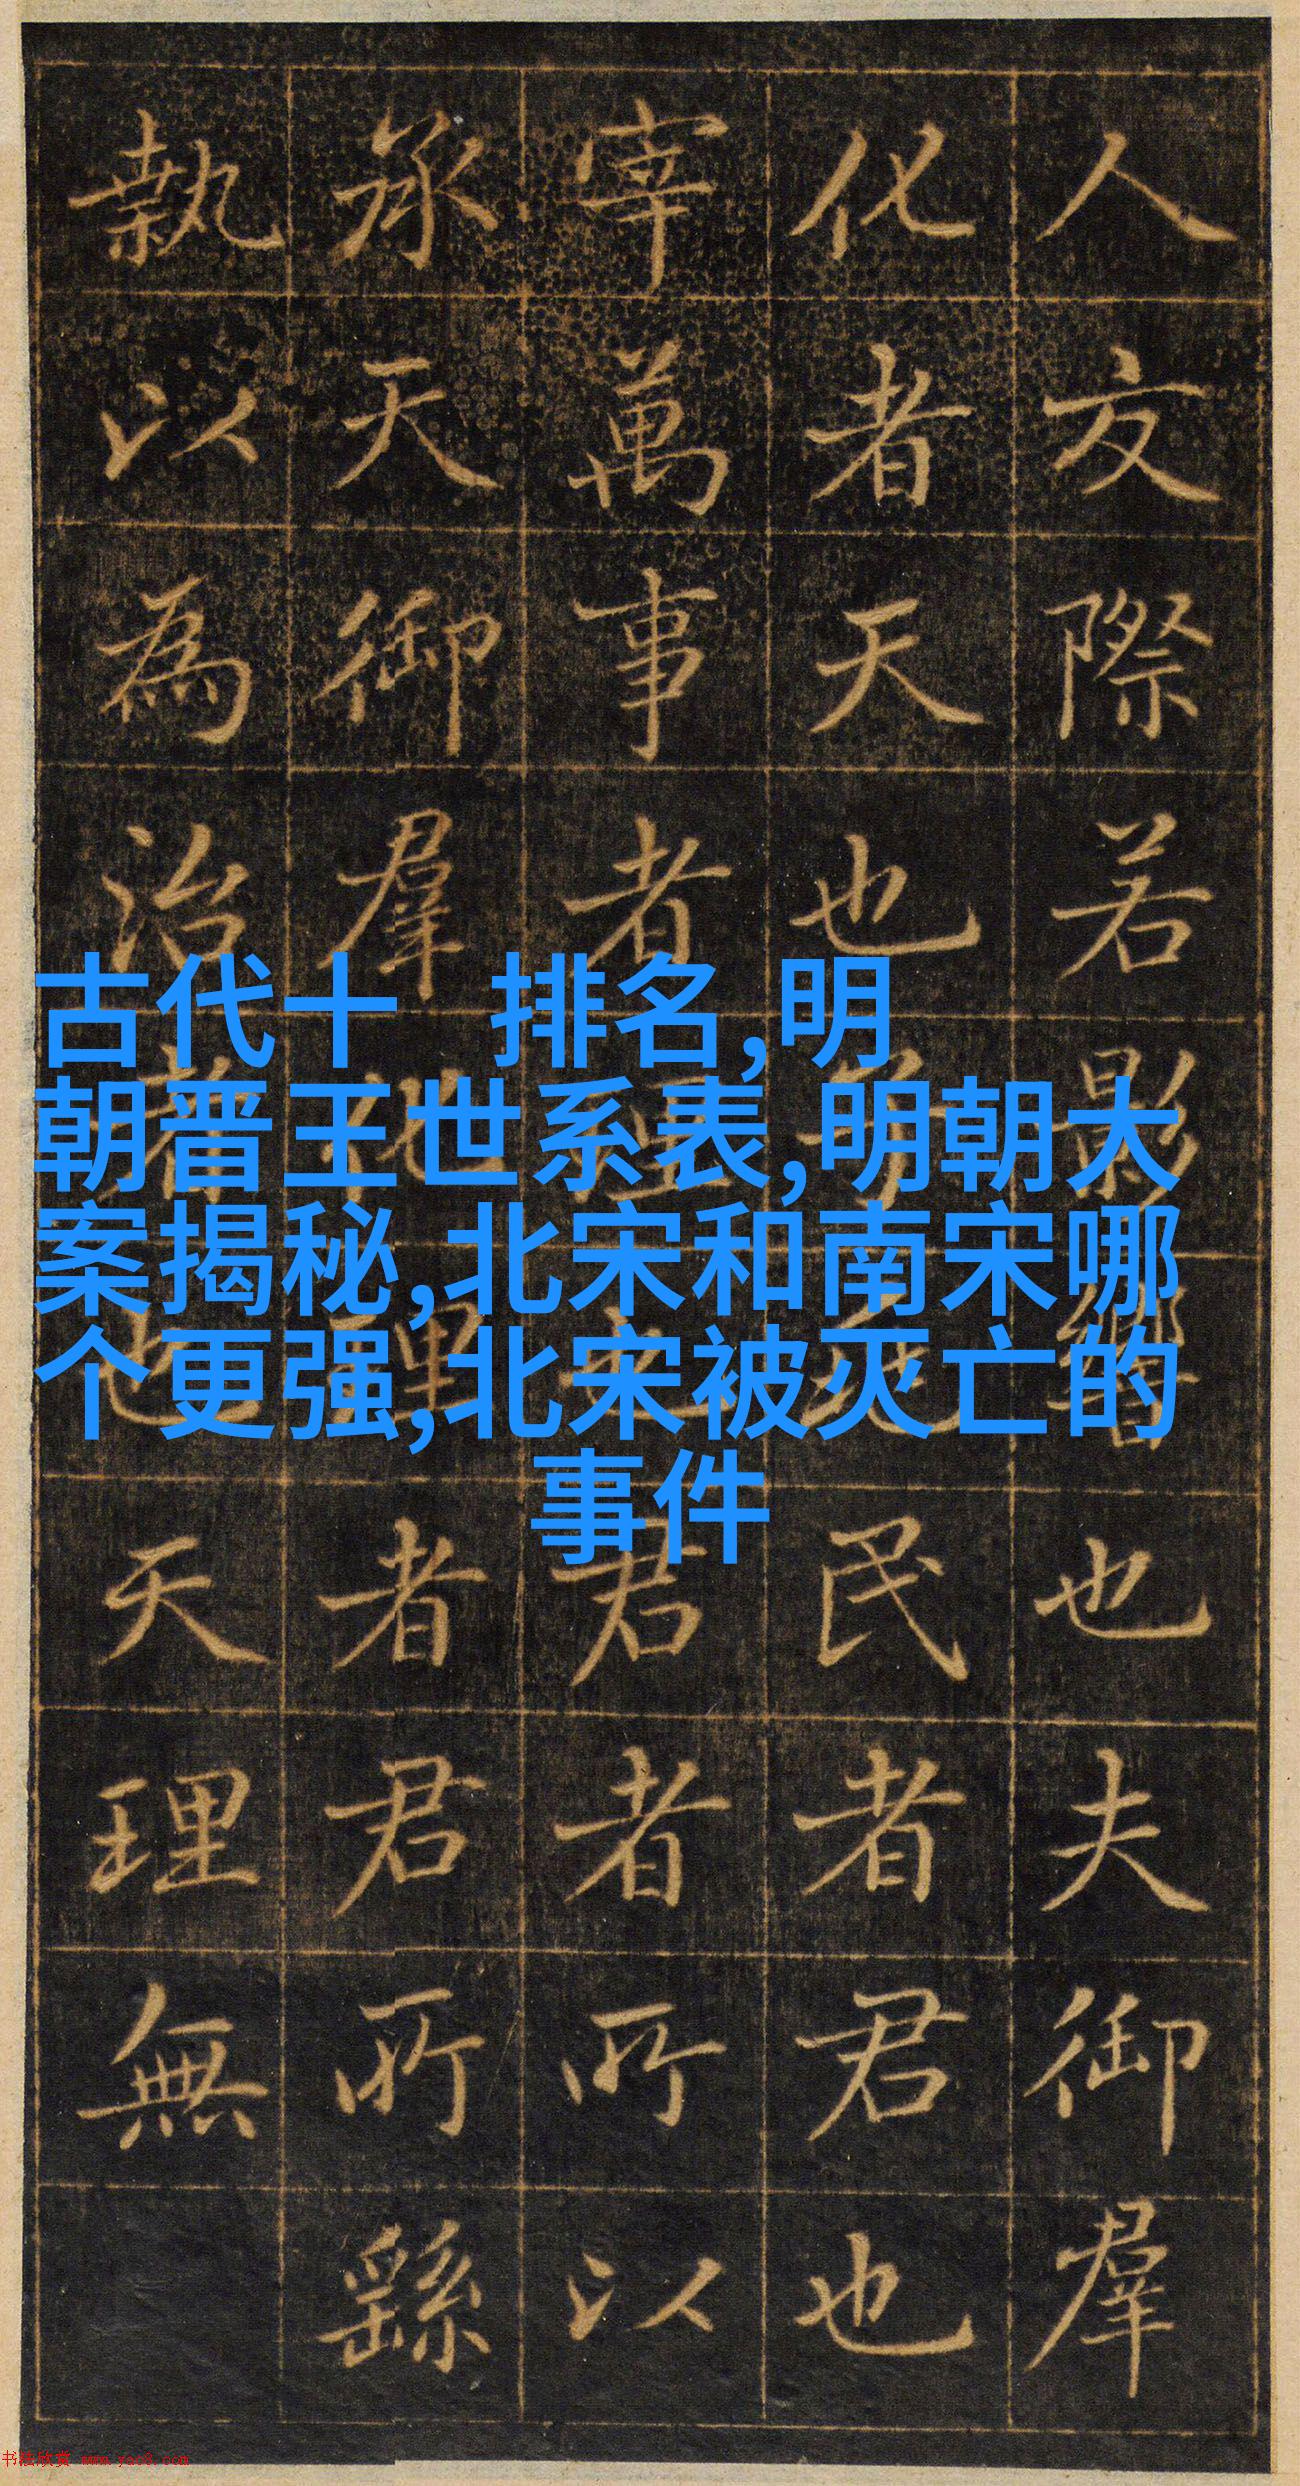 人交際若影響也夫御羣
化者天也民者君也
宰萬事者君者所以
承天御羣理者君所繇
執以為治者也天理無
古代十 排名,明
朝晋王世系表,明朝大
案揭秘,北宋和南宋哪
个更强,北宋被灭亡的
事件
书法欣赏 www.yac8.com